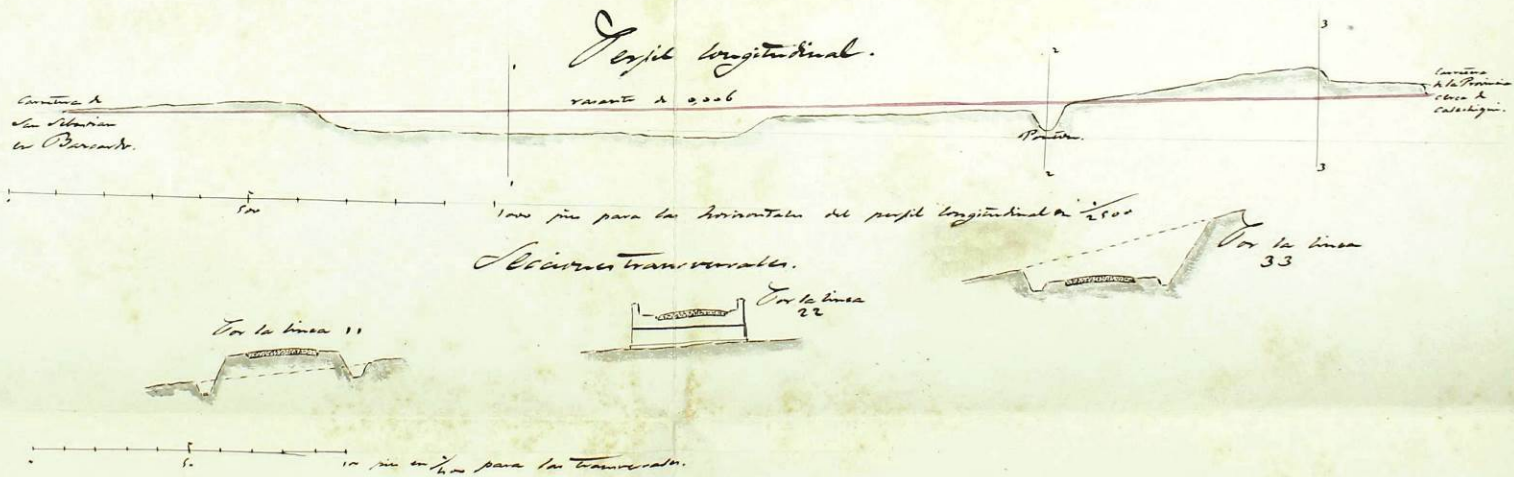 Perfil longitudinal.
1
2
3
Carretera de
San Sebastian
en
rasante de 0,006
Carretera
de la Provincia
cerca de
Ponton.
1
2
3
500
1000 pies para las horizontales del perfil longitudinal en 1/2500
Secciones transversales.
Por la linea
33
Por la linea
22
Por la linea 11
50
pies en para las transversales.